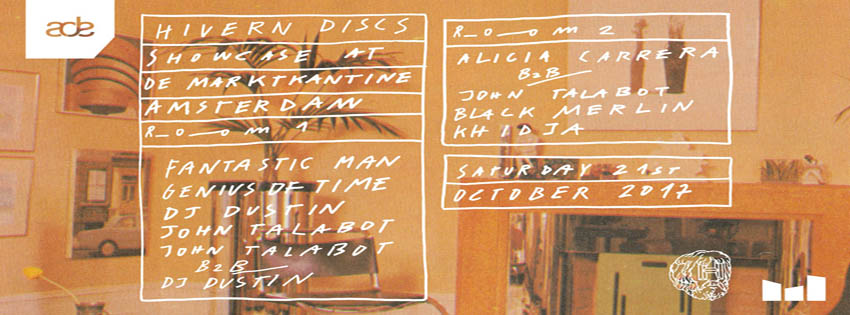 ade
HIVERN DISCS
SHOWCASE AT
DE MARKTKANTINE
AMSTERDAM
ROOM 1
FANTASTIC MAN
GENIUS OF TIME
DJ DUSTIN
JOHN TALABOT
JOHN TALABOT
B2B
DJ DUSTIN
ROOM 2
ALICIA CARRERA
B2B
JOHN TALABOT
BLACK MERLIN
KHIDJA
SATURDAY 21ST
OCTOBER 2017
H